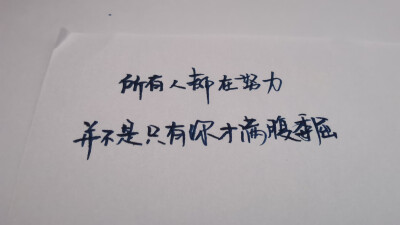 所有人都在努力
并不是只有你才满腹委屈